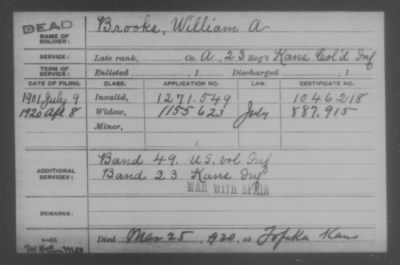 DEAD
NAME OF SOLDIER: Brooks, William A
SERVICE: Late rank, Co. A, 23 Reg't Kans Col'd Inf
TERM OF SERVICE: Enlisted , 1 Discharged , 1
DATE OF FILING. CLASS. APPLICATION NO. LAW. CERTIFICATE NO.
1901 July 9 Invalid, 1271.549 1046218
1920 Apl 8 Widow, 1155623 July 887.915
Minor,
ADDITIONAL SERVICES: Band 49. U.S. Vol Inf
Band 23 Kans Inf
WAR WITH SPAIN
REMARKS:
Died Mar 25, 1920, at Topeka Kans